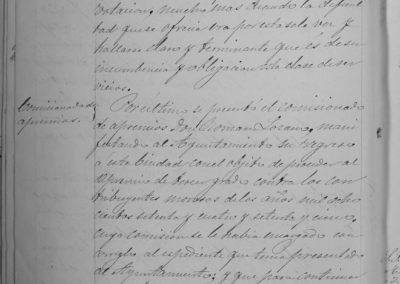 cortacion, mucho mas cuando la dificul
tad que se ofrecia era por esta sola vez y
hallarse claro y terminante que és de su
incumbencia y obligacion esta clase de ser
vicios.
Comisionado de
apremios.
Por último se presentó el comisionado
de apremios Don Roman Lozano, mani
festando al Ayuntamiento su regreso
á esta Ciudad con el objeto de proceder al
apremio de tercer grado contra los con
tribuyentes morosos de los años mil ocho
cientos setenta y cuatro y setenta y cinco,
cuya comision se le habia encargado con
arreglo al espediente que tenia presentado
al Ayuntamiento; y que para continuar